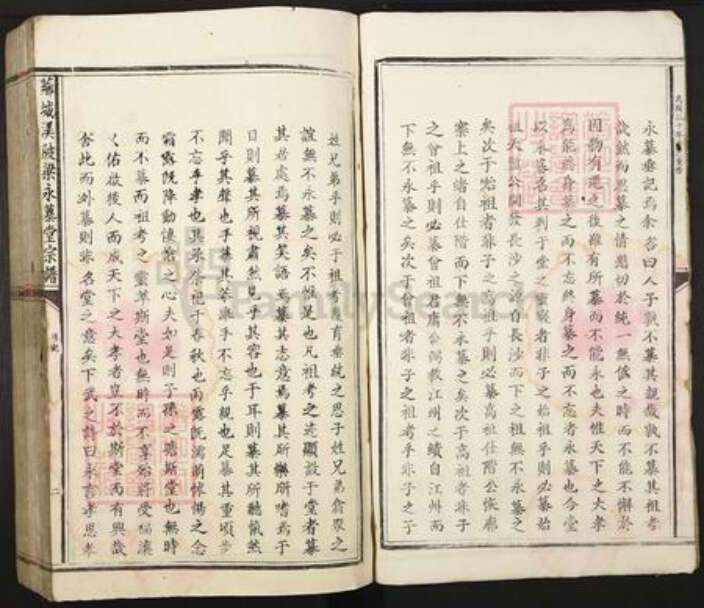 永慕堂記為余告曰人子孰不慕其親哉孰不慕其祖考
歟然而思慕之情懇切於純一無偽之時而不能不懈於
因物有遷之後雖有所慕而不能永也夫惟天下之大孝
為能終身慕之而不忘終身慕之而不忘者永慕也今堂
以永慕名其判于堂之靈觀者非子之始祖乎則必慕始
祖天監公開發長沙之源自長沙而下之祖無不永慕之
矣次于始祖者非子之高祖乎則必慕高祖仕階公俟廓
寨上之緒自仕階而下無不永慕之矣次于高祖者非子
之曾祖乎則必慕曾祖君庸公弼教江州之績自江州而
下無不慕之永慕之矣次于曾祖者非子之祖考乎非子之子
姓兄弟乎則必于祖考
有垂統之恩子姓兄弟翕聚之
誼無不永慕之矣不惟是也凡祖考之迹顯設于堂者慕
其居處焉慕其笑語焉慕其志意焉慕其所樂所嗜焉于
目則慕其所視肅然見乎其容也于耳則慕其所聽愾然
聞乎其聲也手慕其
乎不忘乎親也足慕其重頃步
不忘乎孝也其承祭祀于春秋也雨露既濡則怵惕之念
霜露既降動悽愴之心夫如是則子孫之瞻斯堂也無時
而不慕而祖考之靈萃斯堂也無時而不享始將受福瀼
〱佑啟後人而成天下之大孝者豈不於斯堂而有興哉
舍此而外慕則非名堂之意矣下武之詩曰永言孝思孝
蕪城美陂梁永慕堂宗譜
二